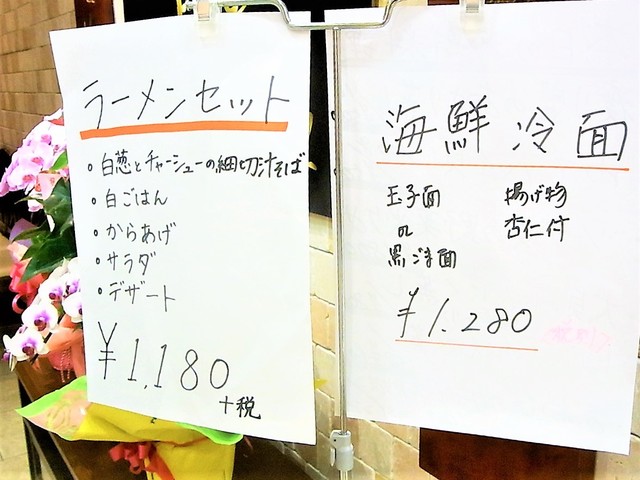 ラーメンセット
・白葱とチャーシューの細切汁そば
・白ごはん
・からあげ
・サラダ
・デザート
¥1,180
+税
海鮮 冷面
玉子面
or
黒ごま面
揚げ物
杏仁付
¥1.280